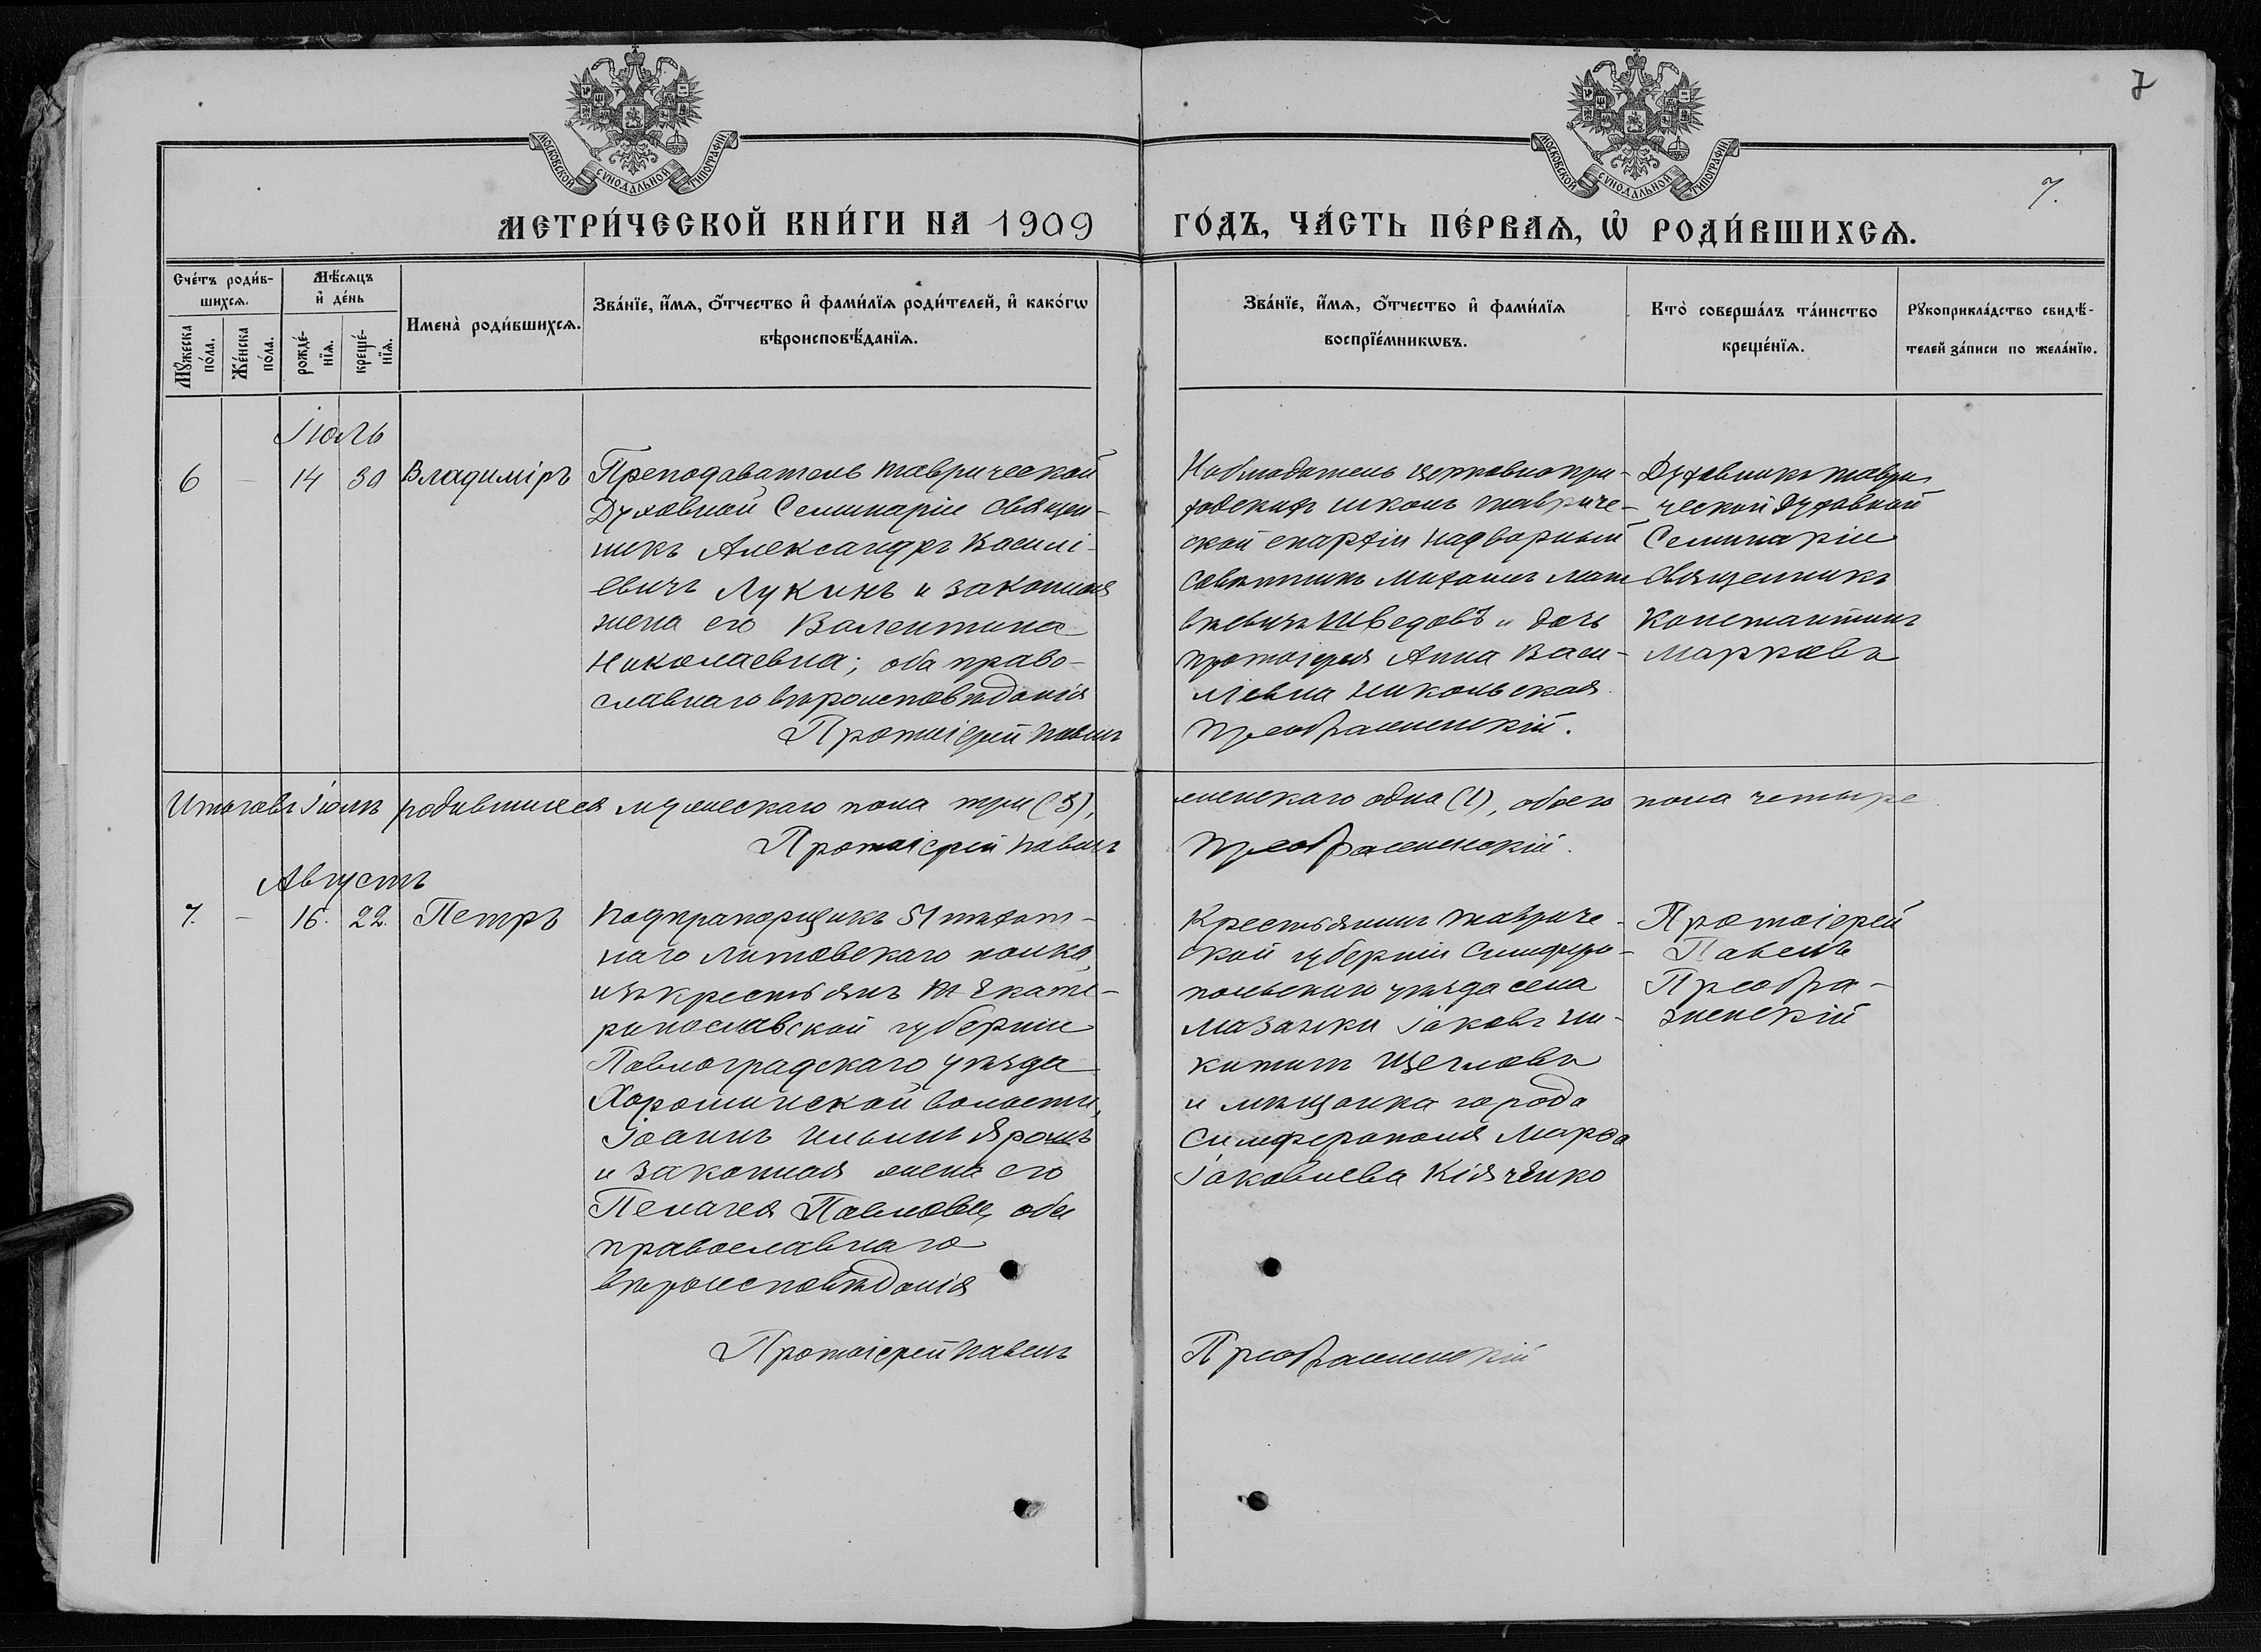 7
МОСКОВСКОЙ СУНОДАЛЬНОЙ ТИПОГРАФІИ
МОСКОВСКОЙ СУНОДАЛЬНОЙ ТИПОГРАФІИ
7.
МЕТРИ́ЧЕСКОЙ КНИ́ГИ НА 1909
ГО́ДЪ, ЧА́СТЬ ПЕ́РВАѦ, Ѡ҆ РОДИ́ВШИХСѦ.
Сче́тъ роди́в-
шихсѧ.
Мꙋ́жеска по́ла.
Же́нска по́ла.
Мѣ́сѧцъ
и҆ де́нь
рожде́-
нїѧ.
креще́-
нїѧ.
Имена̀ роди́вшихсѧ.
Зва́нїе, и҆́мѧ, ѻ҆́тчество и҆ фами́лїѧ роди́телей, и҆ како́гѡ
вѣроисповѣ́данїѧ.
Зва́нїе, и҆́мѧ, ѻ҆́тчество и҆ фами́лїѧ
воспрїе́мникѡвъ.
Кто̀ соверша́лъ та́инство
креще́нїѧ.
Рꙋкоприкла́дство свидѣ́-
телей за́писи по жела́нїю.
Іюль
6 - 14 30 Владиміръ
Преподаватель таврической
Духовной Семинаріи Священ-
никъ Александръ Василі-
евичъ Лукинъ и законная
жена его Валентина
Николаевна; оба право-
славнаго вѣроисповѣданія
Протоіерей Павелъ
Наблюдатель церковнопри-
ходскихъ школъ тавриче-
ской епархіи надворный
Совѣтникъ Михаилъ Мат
вѣевичъ Шведовъ и дочь
протоіерея Анна Васи-
ліевна Никольская.
Преображенскій.
Духовникъ таври
ческой Духовной
Семинаріи
Священникъ
Константинъ
Марковъ
Итого въ Іюлѣ родившихся мужескаго пола три (3),
женскаго одна (1), обоего пола четыре
Протоіерей Павелъ
Преображенскій.
Августъ
7. - 16. 22. Петръ
Подпрапорщикъ 51 пѣхот-
наго Литовскаго полка,
изъ крестьянъ Екате-
ринославской губерніи
Павлоградскаго уѣзда
Хорошинской волости,
Іоаннъ Ильинъ Ярошъ
и законная жена его
Пелагея Павлова, оба
православнаго
вѣроисповѣданія
Протоіерей Павелъ
Крестьянинъ тавриче-
ской губерніи Симферо-
польскаго уѣзда села
Мазанки Іаковъ Ни-
китинъ Щегловъ
и мѣщанка города
Симферополя Марѳа
Іаковлева Кіяченко
Преображенскій
Протоіерей
Павелъ
Преобра-
женскій